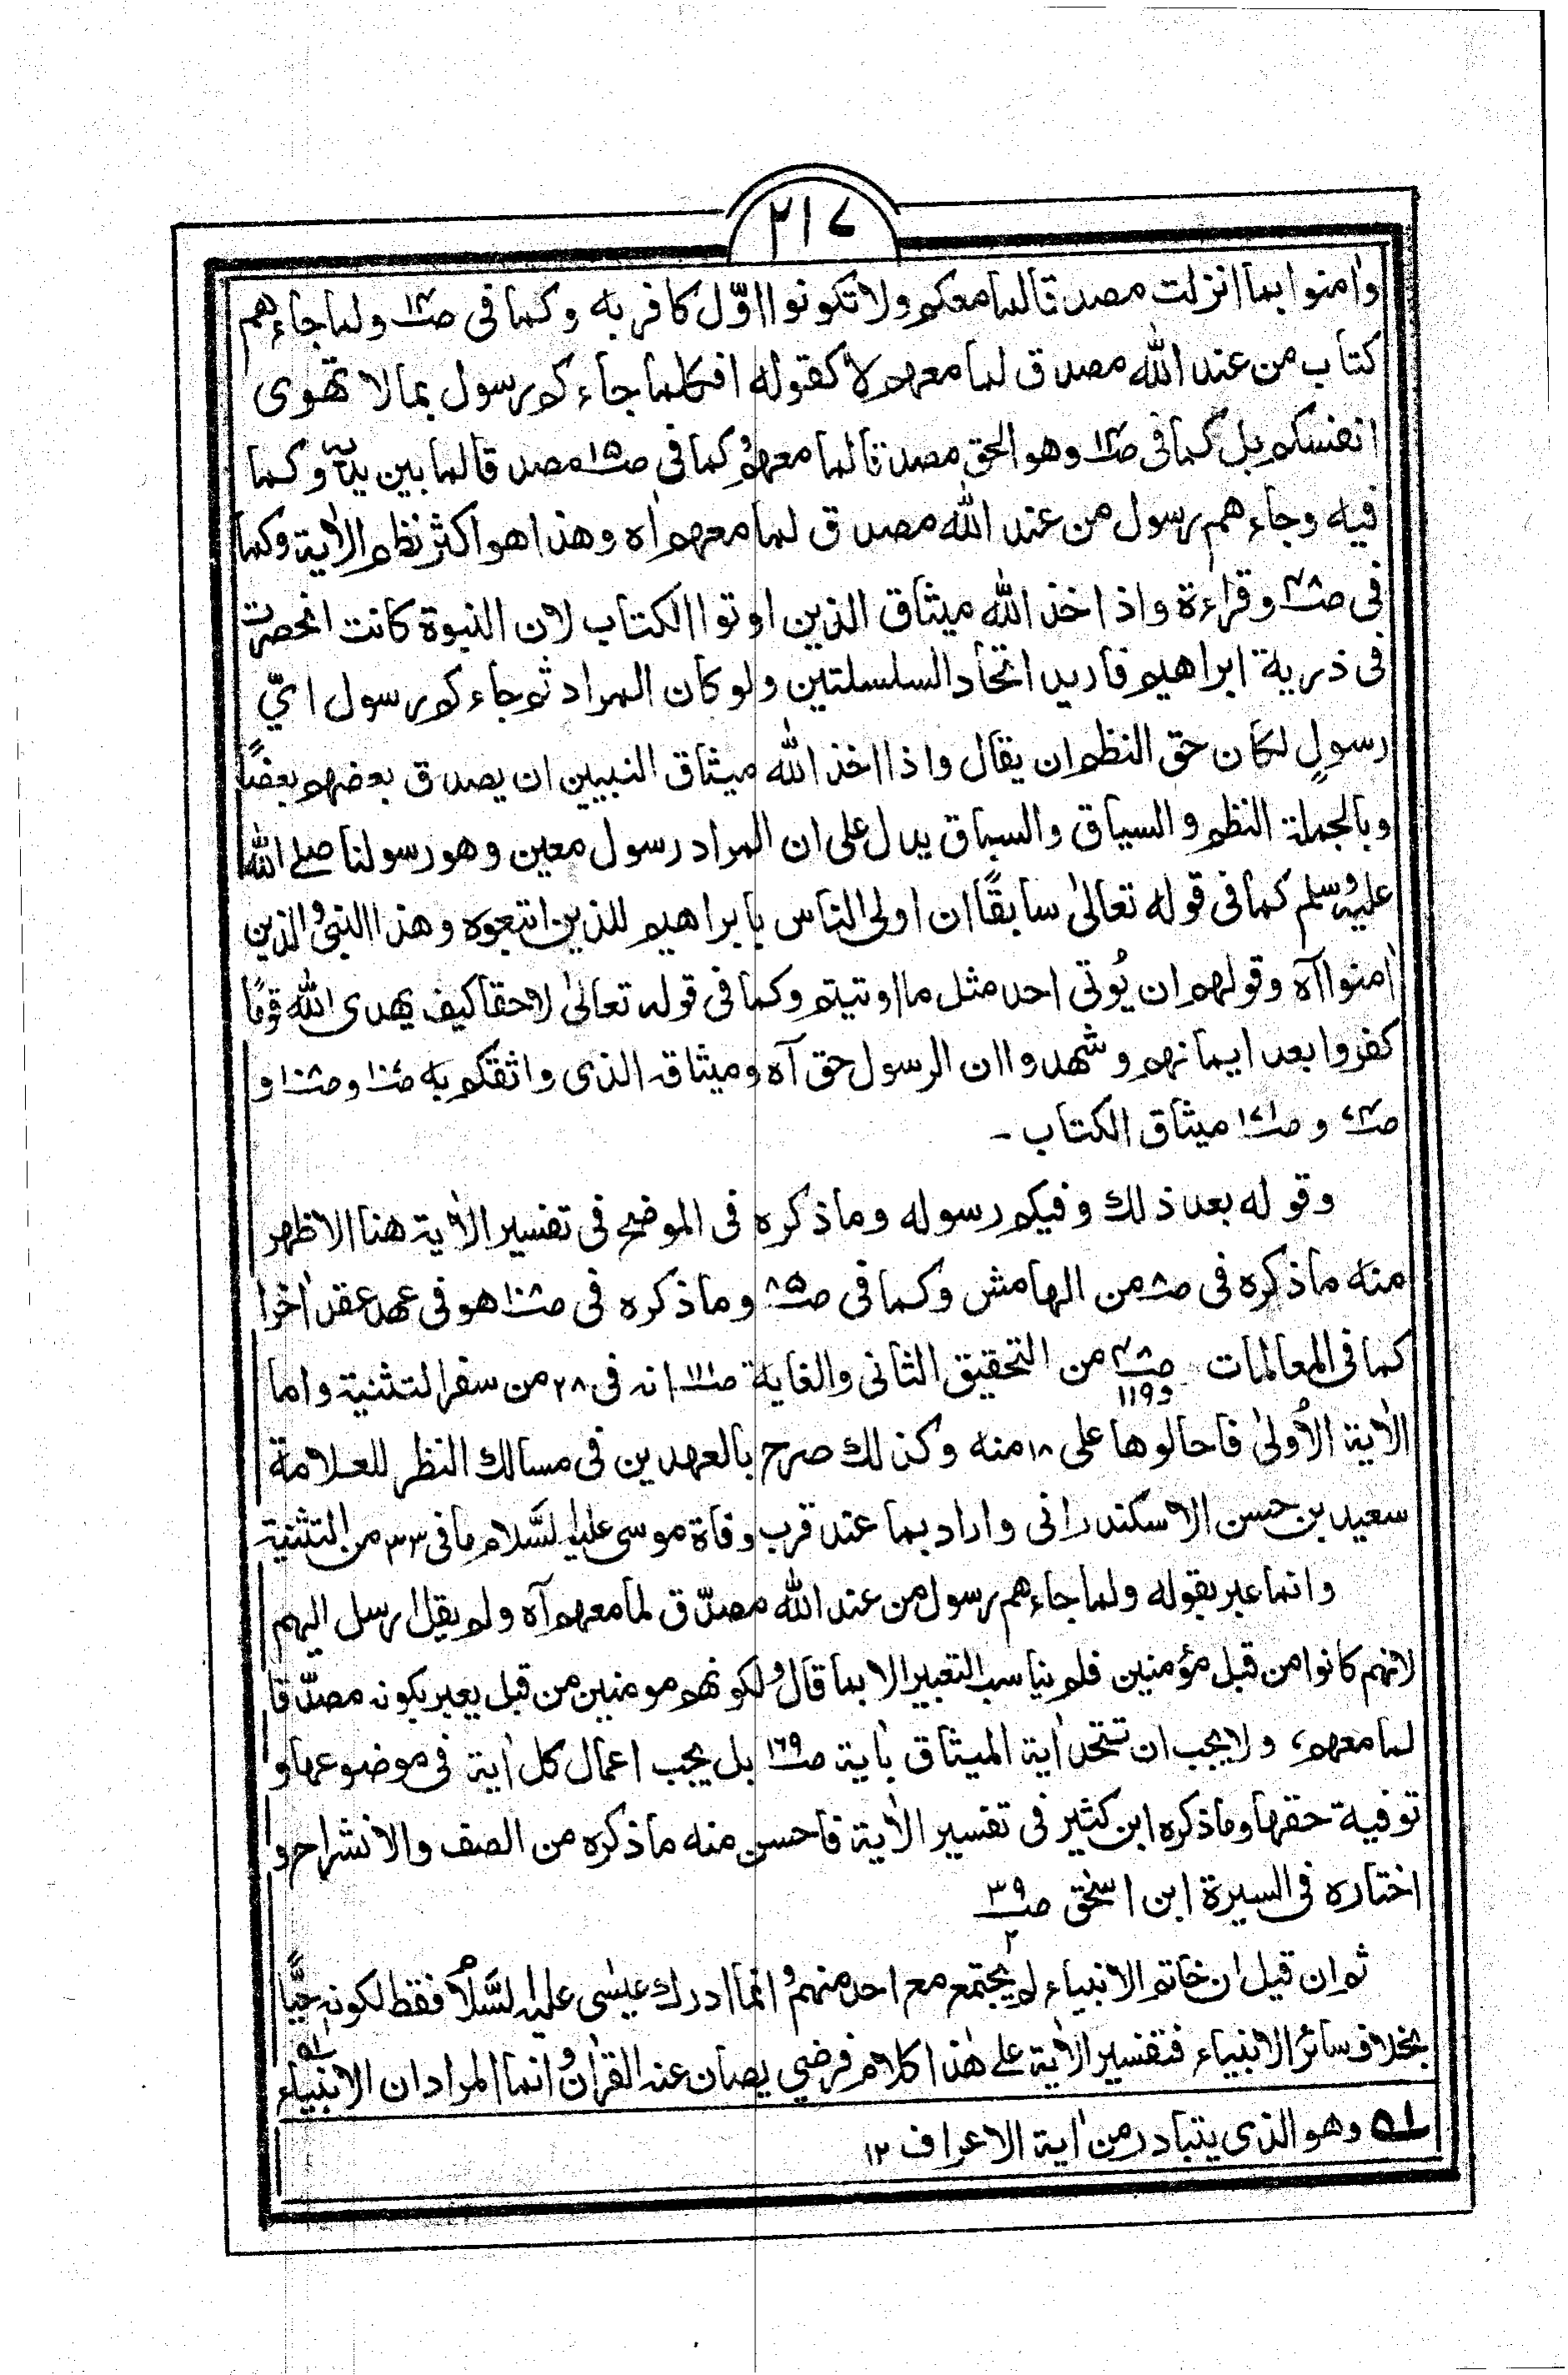 ٢١٧
واٰمنوا بما انزلت مصدقا لما معكم ولا تكونوا اوّل كافر به وكما فى ص١٣ ولما جاءهم
كتاب من عند الله مصدق لما معهم لا كقوله افكلما جاءكم رسول بما لا تهوى
انفسكم بل كما فى ص١٣ وهو الحق مصدقا لما معهم وكما فى ص١٥ مصدقا لما بين يديه وكما
فيه وجاءهم رسول من عند الله مصدق لما معهم اٰه وهذا هو اكثر نظم الاٰية وكما
فى ص وقراءة واذ اخذ الله ميثاق الذين اوتوا الكتاب لان النبوة كانت انحصرت
فى ذرية ابراهيم فاريد اتحاد السلسلتين ولو كان المراد ثم جاءكم رسول ايّ
رسولٍ لكان حق النظم ان يقال واذا اخذ الله ميثاق النبيين ان يصدق بعضهم بعضًا
وبالجملة النظم والسياق والسباق يدل على ان المراد رسول معين وهو رسولنا صلے الله
عليه وسلم كما فى قوله تعالىٰ سابقًا ان اولى الناس بابراهيم للذين اتبعوه وهذا النبى والذين
اٰمنوا آه وقولهم ان يُوتى احد مثل ما اوتيتم وكما فى قوله تعالىٰ لاحقا كيف يهدى الله قومًا
كفروا بعد ايمانهم وشهدوا ان الرسول حق آه وميثاقه الذى واثقكم به ص و ص و
ص و ص١٧١ ميثاق الكتاب ـ
وقوله بعد ذلك وفيكم رسوله وما ذكره فى الموضح فى تفسير الاٰية هنا الاظهر
منه ما ذكره فى ص من الهامش وكما فى ص٨٥ وما ذكره فى ص هو فى عهد عقد اٰخرا
كما فى المعالمات ص من التحقيق الثانى والغاية ص١١١ انه فى ٢٨ من سفر التثنية واما
و١١٩
الاٰية الاُولىٰ فاحالوها على ١٨ منه وكذلك صرح بالعهدين فى مسالك النظر للعلامة
سعيد بن حسن الاسكندرانى واراد بما عند قرب وفاة موسى عليه السَّلام ما فى ٣٣ من التثنية
وانما عبر بقوله ولما جاءهم رسول من عند الله مصدّق لما معهم آه ولم يقل ارسل اليهم
لانهم كانوا من قبل مؤمنين فلم يناسب التعبير الا بما قال ولكونهم مومنين من قبل يعبر بكونه مصدّقا
لما معهم، ولا يجب ان تتحد اٰية الميثاق باٰية ص١٦٩ بل يجب اعمال كل اٰية فى موضوعها و
توفية حقها وما ذكره ابن كثير فى تفسير الاٰية فاحسن منه ما ذكره من الصف والانشراح و
اختاره فى السيرة ابن اسحٰق ص٣٩
٢
ثم ان قيل ان خاتم الانبياء لم يجتمع مع احد منهم وانما ادرك عيسٰى عليه السَّلام فقط لكونه حيًّا
بخلاف سائر الانبياء فتفسير الاٰية علے هٰذا كلام فرضي يصان عنه القراٰن وانما المراد ان الانبياء
ا؎ وهو الذى يتبادر من اٰية الاعراف ١٢